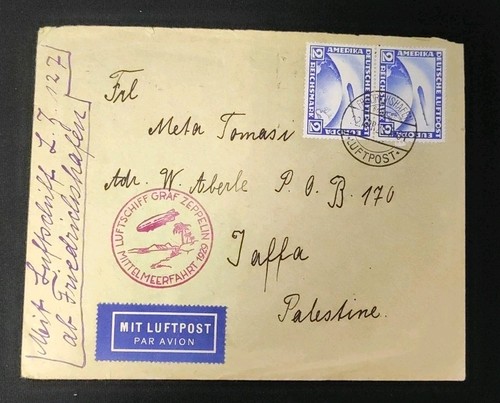 Mit Luftschiff L.Z. 127
ab Friedrichshafen
Frl
Meta Tomasi
Adr. W. Aberle P.O.B. 170
Jaffa
Palestine.
2 AMERIKA 2
REICHSMARK
DEUTSCHE LUFTPOST
EUROPA
2 AMERIKA 2
REICHSMARK
DEUTSCHE LUFTPOST
EUROPA
LUFTPOST
LUFTSCHIFF GRAF ZEPPELIN
MITTELMEERFAHRT 1929
MIT LUFTPOST
PAR AVION